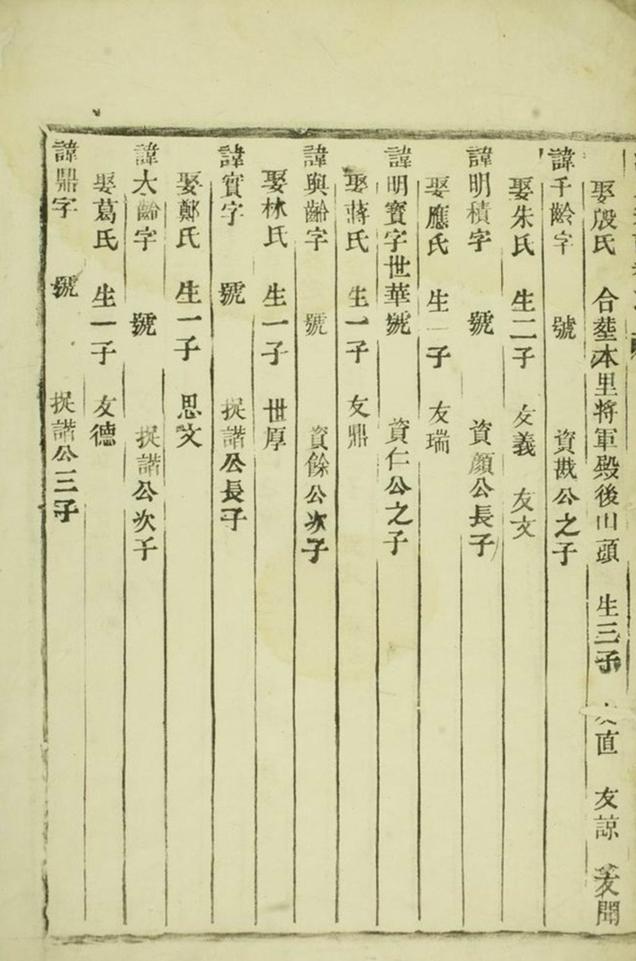 娶殷氏 合塟本里将軍殿後山頭 生三子 友直 友諒 友聞
諱千齡字 號 資戡公之子
娶朱氏 生二子 友義 友文
諱明積字 號 資顔公長子
娶應氏 生一子 友瑞
諱明寳字世華號 資仁公之子
娶蔣氏 生一子 友鼎
諱與齡字 號 資餘公次子
娶林氏 生一子 世厚
諱實字 號 提諧公長子
娶鄭氏 生一子 思文
諱大齡字 號 提諧公次子
娶葛氏 生一子 友德
諱鼎字 號 提諧公三子